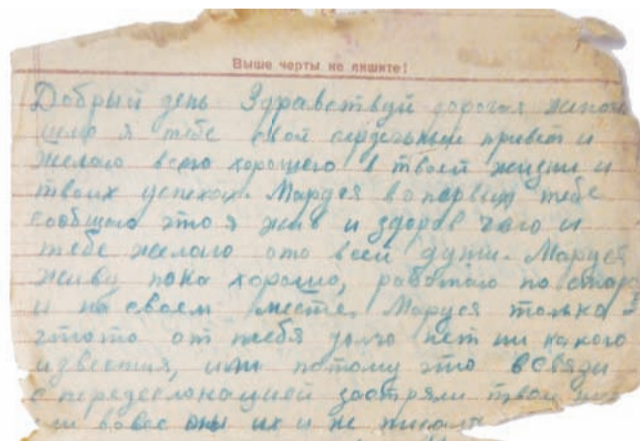 Выше черты не пишите!
Добрый день Здравствуй дорогая жена
шлю я тебе свой сердечный привет и
желаю всего хорошего в твоей жизни и
твоих успехах. Маруся вопервых тебе
сообщаю что я жив и здоров чего и
тебе желаю ото всей души. Маруся
живу пока хорошо, работаю по стар
и на своем месте. Маруся только
чтото от тебя долго нет ни какого
известия, или потому что всвязи
с передислокацией застряли твои
или вовсе ты их и не писала